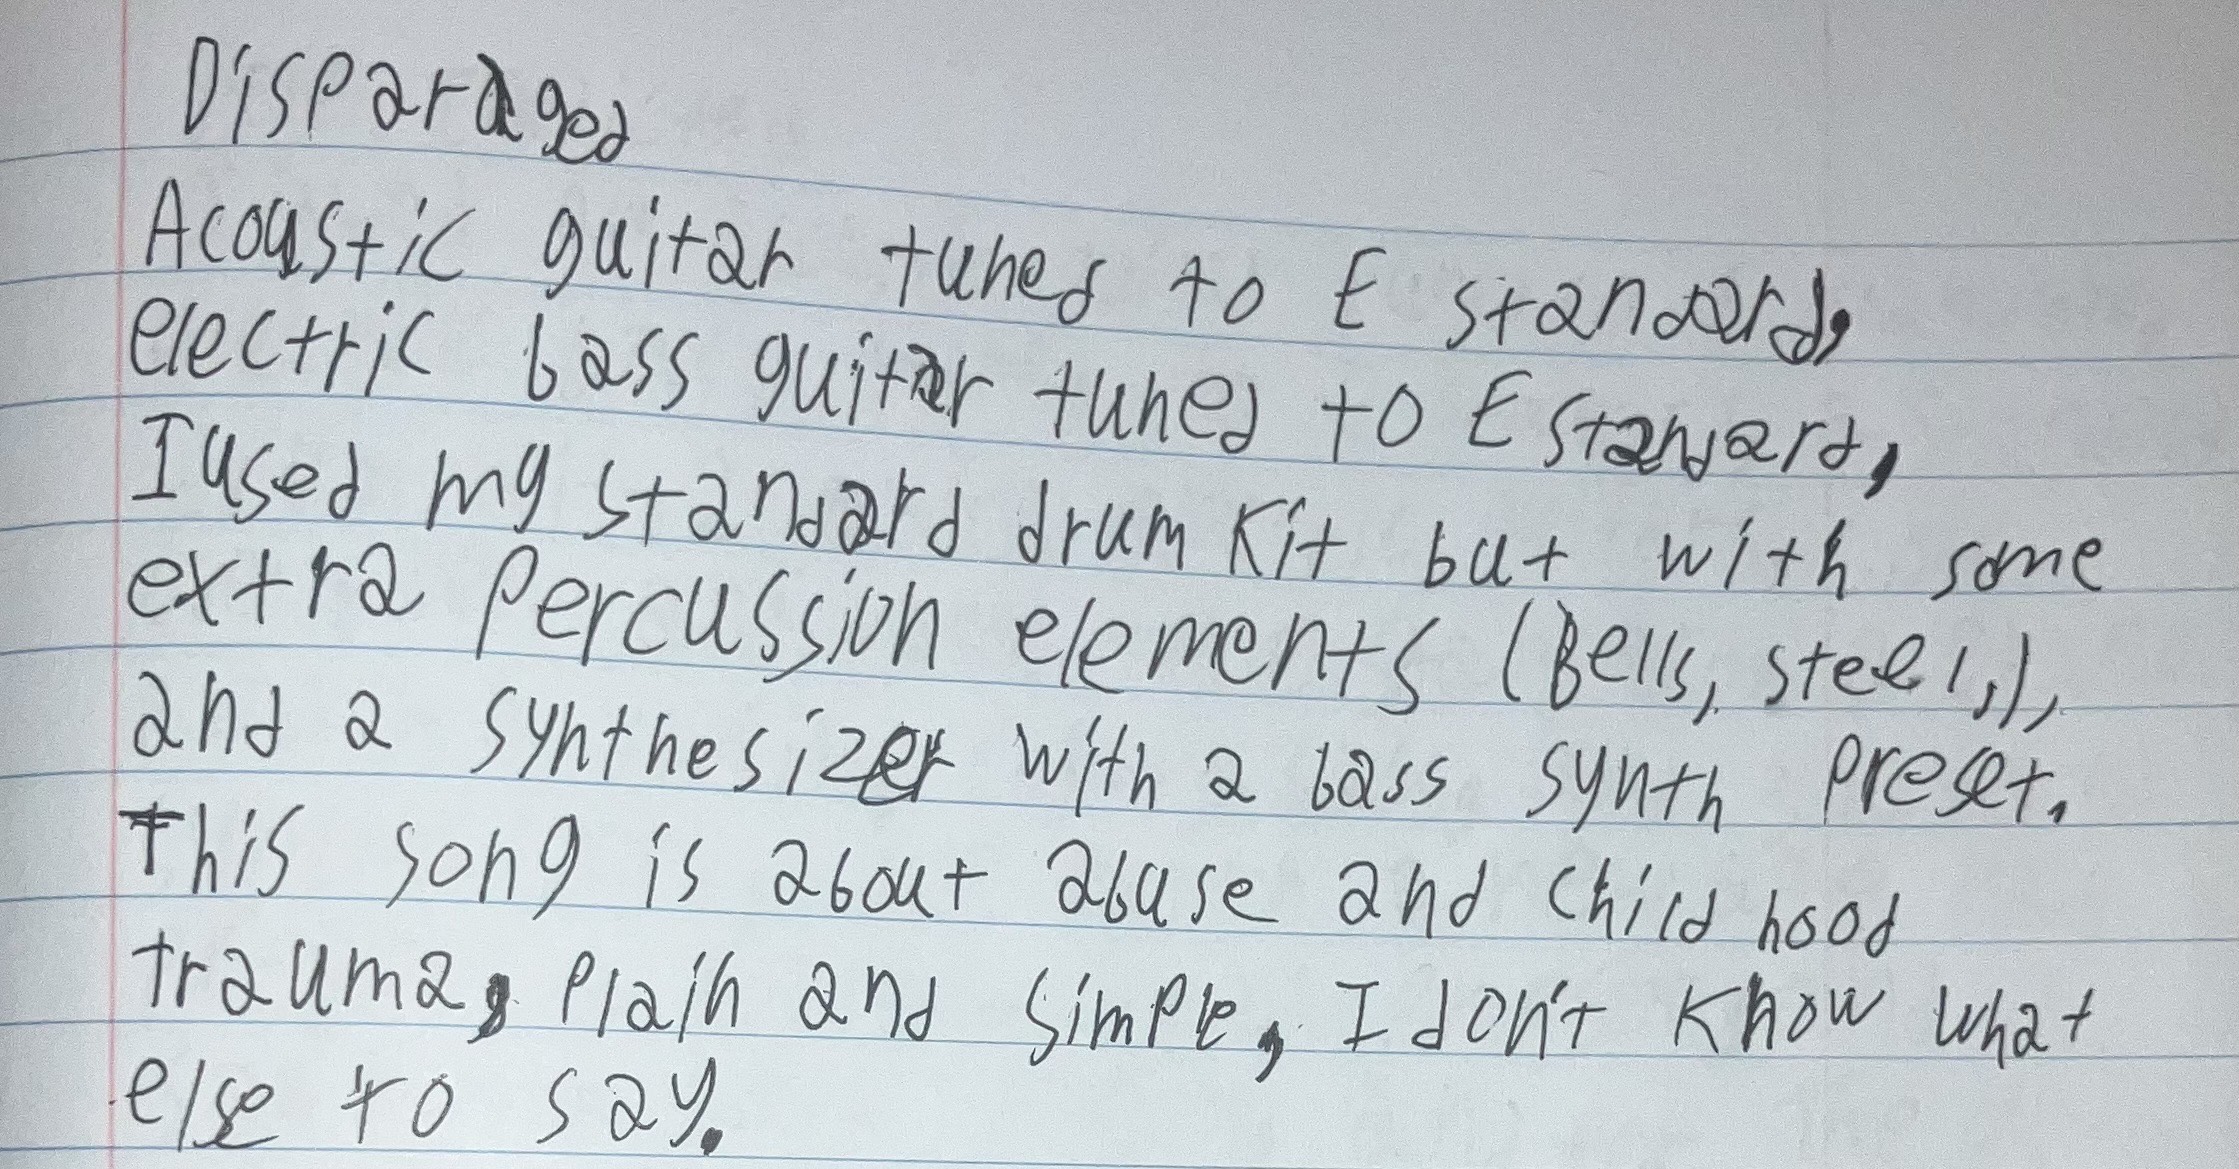 Disparaged
Acoustic guitar tuned to E standard,
electric bass guitar tuned to E standard,
I used my standard drum kit but with some
extra percussion elements (Bells, steel,),
and a synthesizer with a bass synth preset.
This song is about abuse and childhood
trauma, plain and simple, I don't know what
else to say.